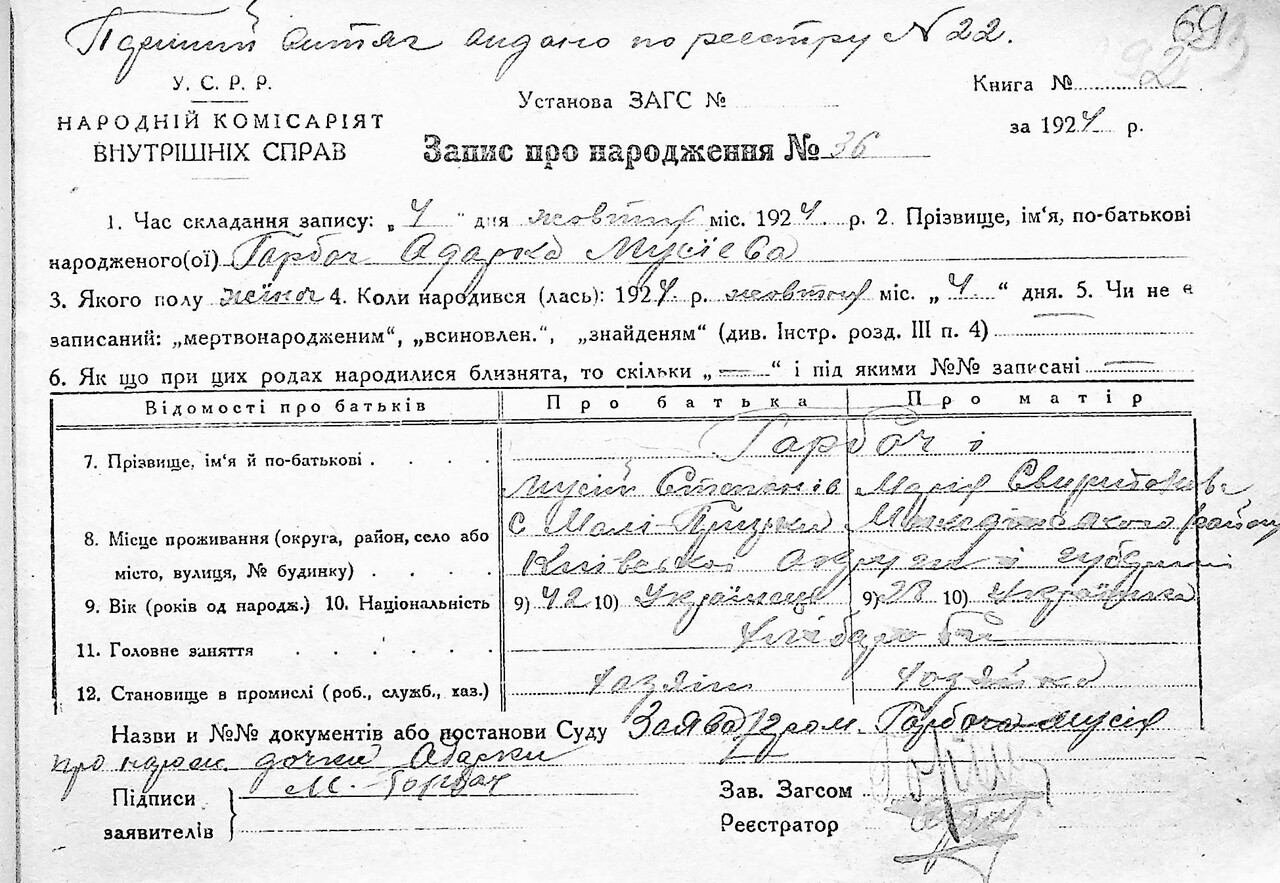 Підтний витяг видано по реестру № 22.
69
У. С. Р. Р.
НАРОДНІЙ КОМІСАРІЯТ
ВНУТРІШНІХ СПРАВ
Установа ЗАГС №
Книга № 2
за 1924 р.
Запис про народження № 36
1. Час складання запису: „ 4 " дня жовтня міс. 1924 р. 2. Прізвище, ім'я, по-батькові
народженого(ої) Гарбач Одарка Мусієва
3. Якого полу жіноч 4. Коли народився (лась): 1924 р. жовтня міс. „ 4. " дня. 5. Чи не є
записаний: „мертвонародженим", „всиновлен.", „знайденям" (див. Інстр. розд. III п. 4)
6. Як що при цих родах народилися близнята, то скільки „ — " і під якими №№ записані —
Відомості про батьків Про батька Про матір
7. Прізвище, ім'я й по-батькові Гарбоч і
Мусій Степанів Марія Свиридонівна
8. Місце проживання (округа, район, село або с. Малі-Прицьки району
місто, вулиця, № будинку) Київської округи і губернії
9. Вік (років од народж.) 10. Національність 9) 42 10) Українець 9) 28 10) Українка
11. Головне заняття хліборобство
12. Становище в промислі (роб., служб., хаз.) хазяін хазяйка
Назви и №№ документів або постанови Суду Заява гром. Гарбача Мусія
про нарож. дочки Одарки
Підписи М. Горбач
заявителів
Зав. Загсом
Реєстратор